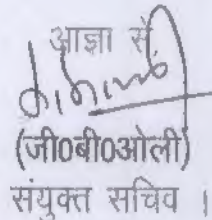 आज्ञा से,
(जी0बी0ओली)
संयुक्त सचिव ।